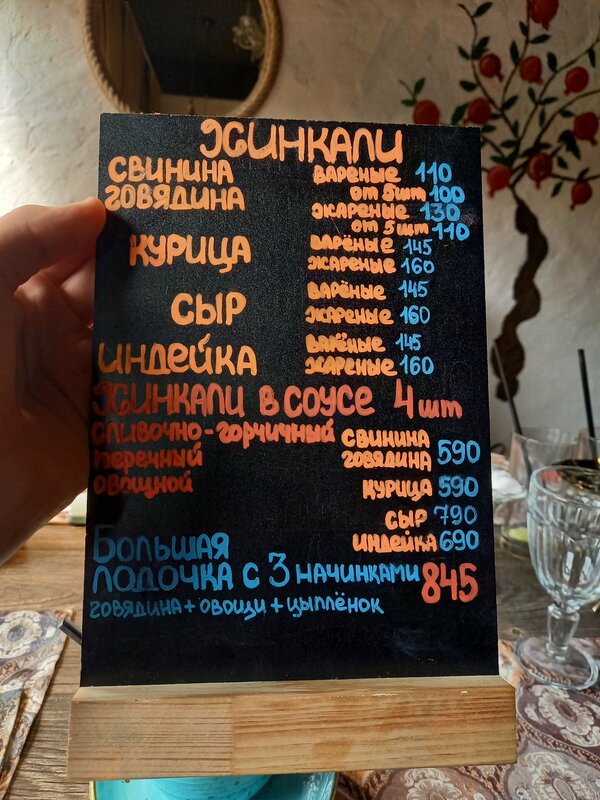 ХИНКАЛИ
СВИНИНА ВАРЕНЫЕ 110
ГОВЯДИНА ОТ 5ШТ 100
ЖАРЕНЫЕ 130
ОТ 5 ШТ 110
КУРИЦА ВАРЁНЫЕ 145
ЖАРЕНЫЕ 160
СЫР ВАРЁНЫЕ 145
ЖАРЕНЫЕ 160
ИНДЕЙКА ВАРЁНЫЕ 145
ЖАРЕНЫЕ 160
ХИНКАЛИ В СОУСЕ 4 ШТ
СЛИВОЧНО-ГОРЧИЧНЫЙ
ПЕРЕЧНЫЙ
ОВОЩНОЙ
СВИНИНА
ГОВЯДИНА 590
КУРИЦА 590
СЫР 790
ИНДЕЙКА 690
БОЛЬШАЯ
ЛОДОЧКА С 3 НАЧИНКАМИ 845
ГОВЯДИНА + ОВОЩИ + ЦЫПЛЁНОК